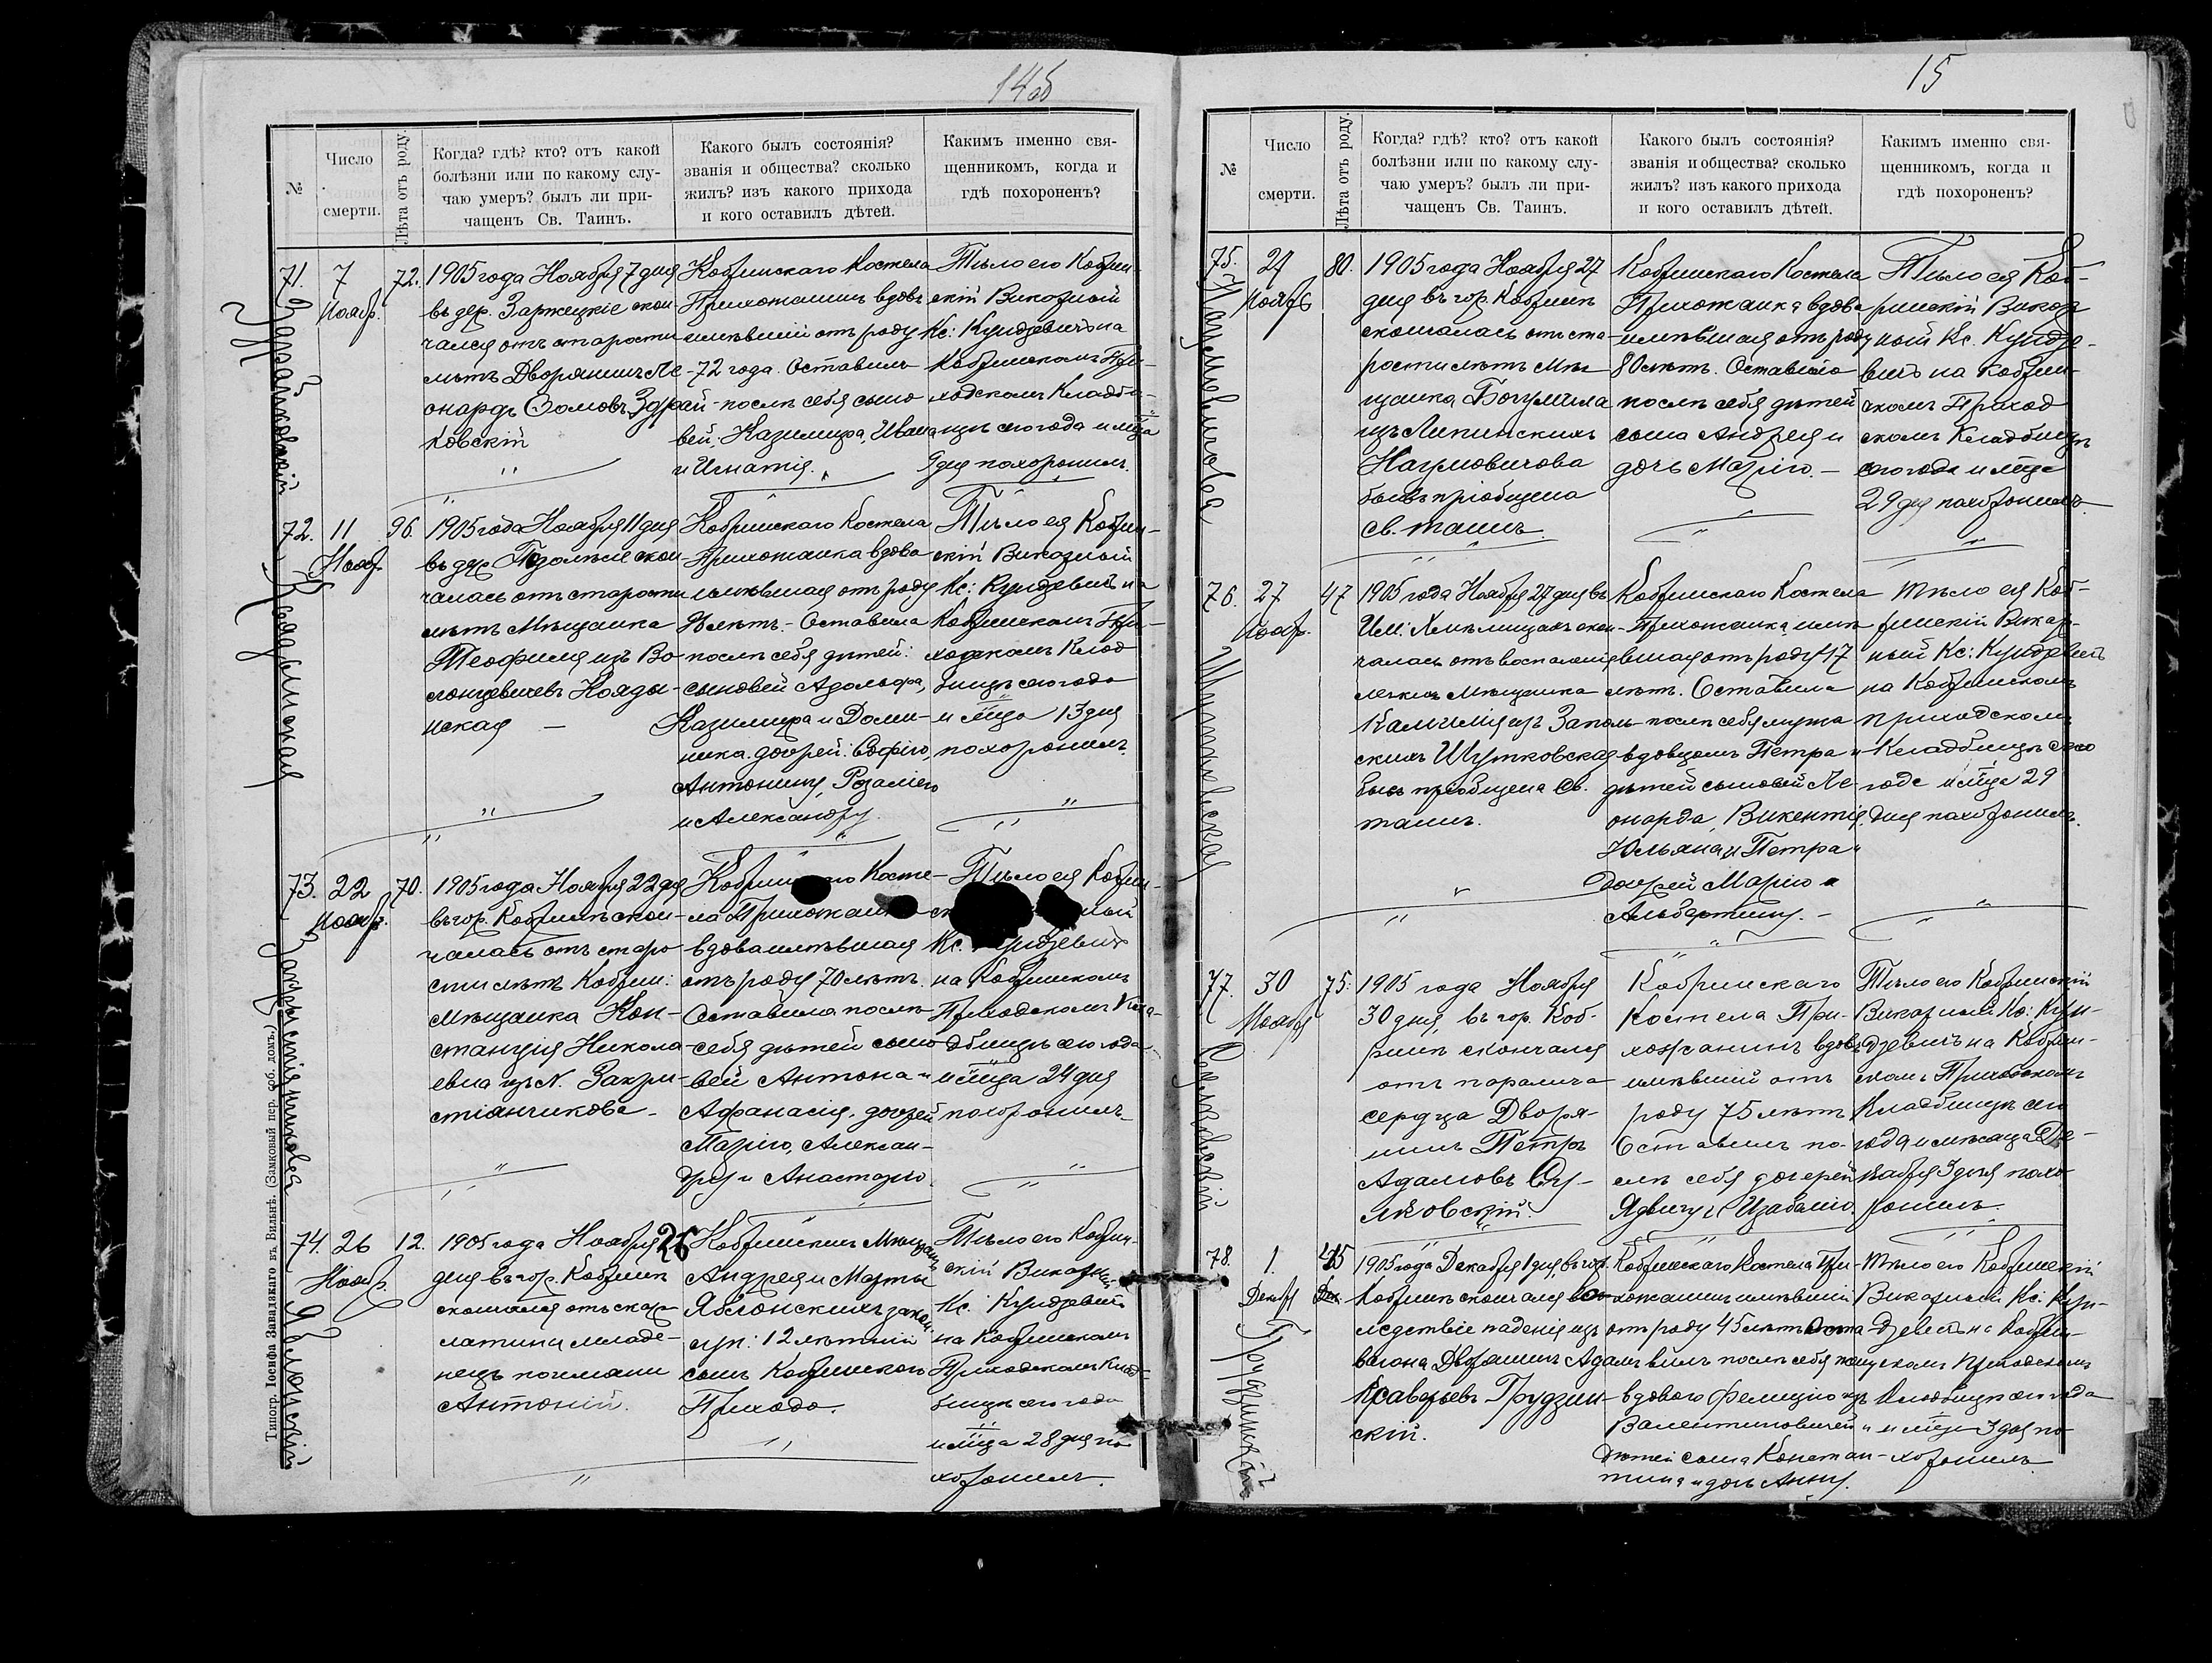 14об
№
Число
смерти.
Лѣта отъ роду.
Когда? гдѣ? кто? отъ какой
болѣзни или по какому слу-
чаю умеръ? былъ ли при-
чащенъ Св. Таинъ.
Какого былъ состоянія?
званія и общества? сколько
жилъ? изъ какого прихода
и кого оставилъ дѣтей.
Какимъ именно свя-
щенникомъ, когда и
гдѣ похороненъ?
71.
7
Нояб.
72.
1905 года Ноября 7 дня
въ дер. Заржецкіе скон-
чался отъ старости
лѣтъ Дворянинъ Ле-
онардъ Ѳомовъ Здрай-
ковскій
Кобринскаго Костела
Прихожанинъ вдовъ
имѣвшій отъ роду
72 года. Оставилъ
послѣ себя сыно
вей: Казимира, Ивана
и Игнатія.
Тѣло его Кобрин-
скій Викарный
Кс: Кундзевичъ на
Кобринскомъ При-
ходскомъ Кладби-
щѣ сего года и м̃ца
9 дня похоронилъ.
Здрайковскій
72.
11
Нояб.
96.
1905 года Ноября 11 дня
въ дер. скон-
чалась отъ старости
лѣтъ Мѣщанка
Теофилія изъ Во-
лонцевичевъ Кояды-
нская —
Кобринскаго Костела
Прихожанка вдова
имѣвшая отъ роду
лѣтъ. - Оставила
послѣ себя дѣтей:
сыновей Адольфа,
Казимира и Доми-
ника. дочерей: Софію,
Антонину, Розалію
и Александру.
Тѣло ея Кобрин-
скій Викарный
Кс: Кундзевичъ на
Кобринскомъ При-
ходскомъ Клад
бищѣ сего года
и м̃ца 13 дня
похоронилъ.
Коядынская
73.
22
Нояб.
70.
1905 года Ноября 22 дня
въ гор. Кобринѣ скон-
чалась отъ старо-
сти лѣтъ Кобрин:
Мѣщанка Кон-
станція Никола-
евна изъ N. Захри-
стіанчикова -
Кобрин го Косте-
ла Прихожан
вдова имѣвшая
отъ роду 70 лѣтъ.
Оставила послѣ
себя дѣтей сыно
вей Антона и
Афанасія, дочерей
Марію, Алексан-
дру и Анастазію.
Тѣло ея Кобрин-
ск ный
Кс. ндзевичъ
на Кобринскомъ
Приходскомъ Кла-
дбищѣ сего года
и м̃ца 24 дня
похоронилъ
Захристіанчикова
74.
26
Нояб.
12.
1905 года Ноября 26
дня въ гор. Кобринѣ
скончался отъ скар-
латины младе-
нецъ по имени
Антоній.
Кобринскихъ Мѣщанъ
Андрея и Марты
Яблонскихъ закон.
суп: 12 лѣтній
сынъ Кобринскаго
Прихода.
Тѣло его Кобрин-
скій Викарный
Кс. Кундзевичъ
на Кобринскомъ
Приходскомъ Клад-
бищѣ сего года
и м̃ца 28 дня по
хоронилъ.
Яблонскій
Типогр. Іосифа Завадзкаго въ Вильнѣ. (Замковый пер. соб. домъ.)
15
№
Число
смерти.
Лѣта отъ роду.
Когда? гдѣ? кто? отъ какой
болѣзни или по какому слу-
чаю умеръ? былъ ли при-
чащенъ Св. Таинъ.
Какого былъ состоянія?
званія и общества? сколько
жилъ? изъ какого прихода
и кого оставилъ дѣтей.
Какимъ именно свя-
щенникомъ, когда и
гдѣ похороненъ?
75.
27
Нояб
80.
1905 года Ноября 27
дня въ гор. Кобринѣ
скончалась отъ ста-
рости лѣтъ Мѣ-
щанка Богумила
изъ Липинскихъ
бывъ пріобщена
Св. таинъ.
Кобринскаго Костела
Прихожанка вдова
имѣвшая отъ роду
80 лѣтъ. Оставила
послѣ себя дѣтей
сына Андрея и
дочь Марію. -
Тѣло ея Коб-
ринскій Викар
ный Кс. Кундзе-
вичъ на Кобрин-
скомъ Приход
скомъ Кладбищѣ
сего года и м̃ца
29 дня похоронилъ
76.
27
Нояб.
47
1905 года Ноября 27 дня въ
Им: скон-
чалась отъ воспаленія
легкихъ Мѣщанка
изъ Заполь-
скихъ Шутковская
бывъ пріобщена Св.
таинъ.
Кобринскаго Костела
Прихожанка имѣ
вшая отъ роду 47
лѣтъ. Оставила
послѣ себя мужа
вдовцомъ Петра и
дѣтей сыновей Ле-
онарда, Викентія,
Юльяна и Петра и
дочерей Марію и
Альбертину. -
Тѣло ея Коб-
ринскій Викар-
ный Кс: Кундзевичъ
на Кобринскомъ
Приходскомъ
Кладбищѣ сего
года и м̃ца 29
дня похоронилъ.
Шутковская
77.
30
Нояб
75.
1905 года Ноября
30 дня, въ гор. Коб-
ринѣ скончался
отъ паралича
сердца Дворя-
нинъ Петръ
Адамовъ Су-
лковскій.
Кобринскаго
Костела При-
хожанинъ вдовъ
имѣвшій отъ
роду 75 лѣтъ
Оставилъ по-
слѣ себя дочерей
Ядвигу и Изабелію.
Тѣло его Кобринскій
Викарный Кс: Кун-
дзевичъ на Кобрин-
скомъ Приходскомъ
Кладбищѣ сего
года и мѣсяца Де-
кабря 3 дня похо
ронилъ.
78.
1.
Декаб
45
1905 года Декабря 1 дня, въ гор.
Кобринѣ скончался вс-
лѣдствіе паденія изъ
вагона Дворянинъ Адамъ
Ксаверьевъ Грудзин-
скій.
Кобринскаго Костела При-
хожанинъ имѣвшій
отъ роду 45 лѣтъ Оста-
вилъ послѣ себя жену
вдового Фелицію изъ
Валентиновичей и
дѣтей сына Констан-
тина и дочь Анну.
Тѣло его Кобринскій
Викарный Кс: Кун-
дзевичъ на Кобрин-
скомъ Приходскомъ
Кладбищѣ сего года
и м̃ца 3 дня по-
хоронилъ.
Грудзинскій